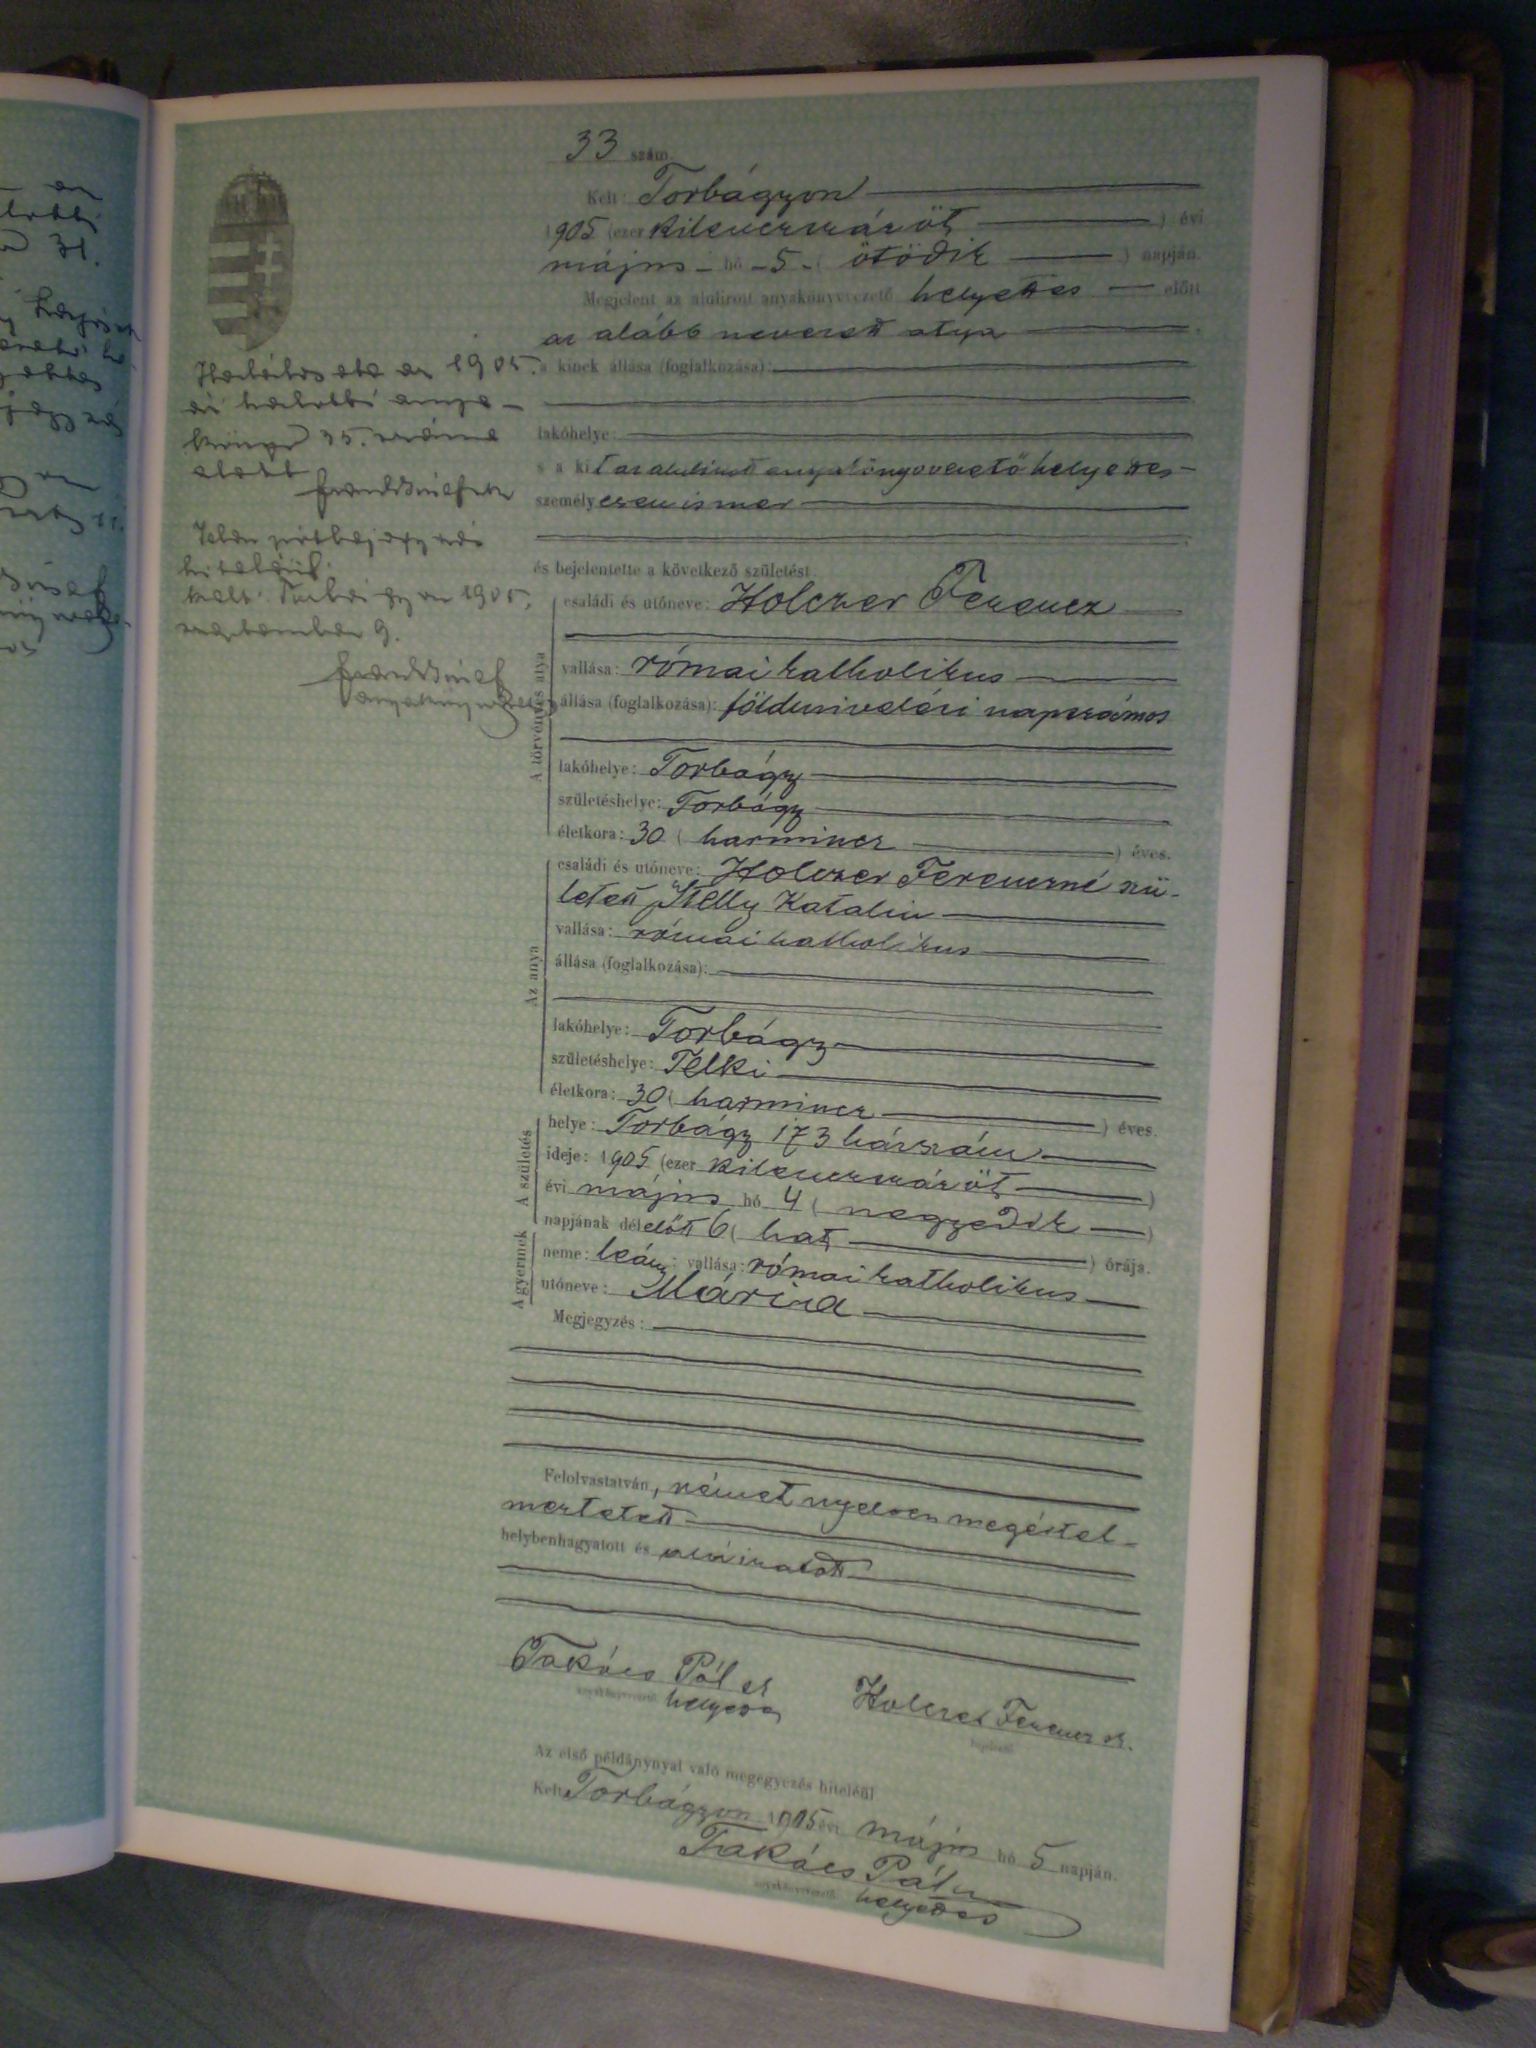 33 szám.
Kelt: Torbágyon
1905 (ezer kilenczszázöt) évi
május hó 5 (ötödik) napján.
Megjelent az alulirott anyakönyvvezető helyettes előtt
az alább nevezett atya
a kinek állása (foglalkozása):
lakóhelye:
s a kit az alulirott anyakönyvvezető helyettes
személyesen ismer
és bejelentette a következő születést.
A törvényes atya
családi és utóneve: Holczer Ferencz
vallása: római katholikus
állása (foglalkozása): földmivelési napszámos
lakóhelye: Torbágy
születéshelye: Torbágy
életkora: 30 (harmincz) éves.
Az anya
családi és utóneve: Holczer Ferenczné szü-
letett Stelly Katalin
vallása: római katholikus
állása (foglalkozása):
lakóhelye: Torbágy
születéshelye: Telki
életkora: 30 (harmincz) éves.
A születés
helye: Torbágy 173 házszám
ideje: 1905 (ezer kilenczszázöt)
évi május hó 4 (negyedik)
napjának délelőtt 6 (hat) órája.
A gyermek
neme: leány; vallása: római katholikus
utóneve: Mária
Megjegyzés:
Felolvastatván, német nyelven megértel-
meztetett
helybenhagyatott és aláiratott
Takács Pál
anyakönyvvezető helyettes
Holczer Ferencz
bejelentő
Az első példánynyal való megegyezés hiteléül
Kelt Torbágyon 1905 évi május hó 5 napján.
Takács Pál
anyakönyvvezető helyettes
1905.
halotti anya-
könyv 35. szám
alatt
Jelen utólag
hiteléül.
Kelt Torbágyon 1905.
szeptember 9.
anyakönyvvezető